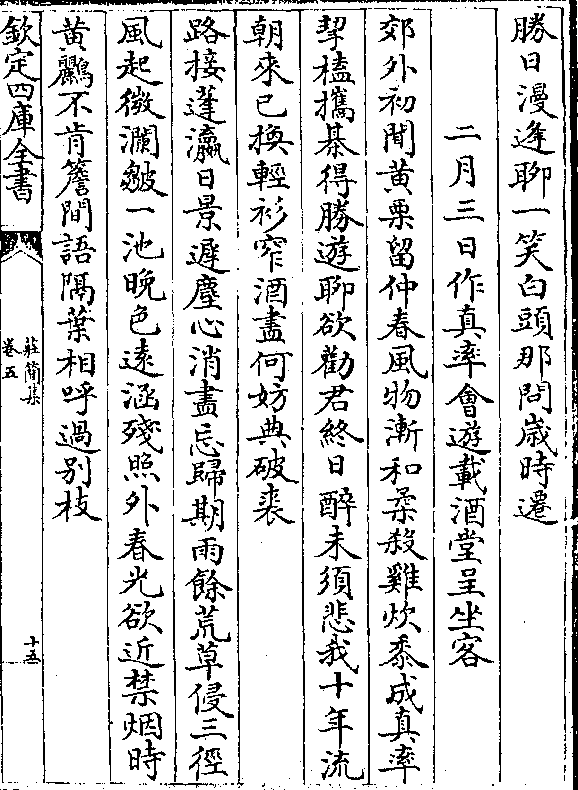 勝日漫逢聊一笑白頭那問歳時遷
二月三日作真率會遊載酒堂呈坐客
郊外初聞黄栗留仲春風物漸和柔殺雞炊黍成真率
挈榼攜棊得勝遊聊欲勸君終日醉未須悲我十年流
朝來已換輕衫窄酒盡何妨典破裘
路接蓬瀛日景遲塵心消盡忘歸期雨餘荒草侵三徑
風起微瀾皺一池晚色遠涵殘照外春光欲近禁烟時
黄鸝不肯簷間語隔葉相呼過别枝
欽定四庫全書
莊簡集
卷五
十五